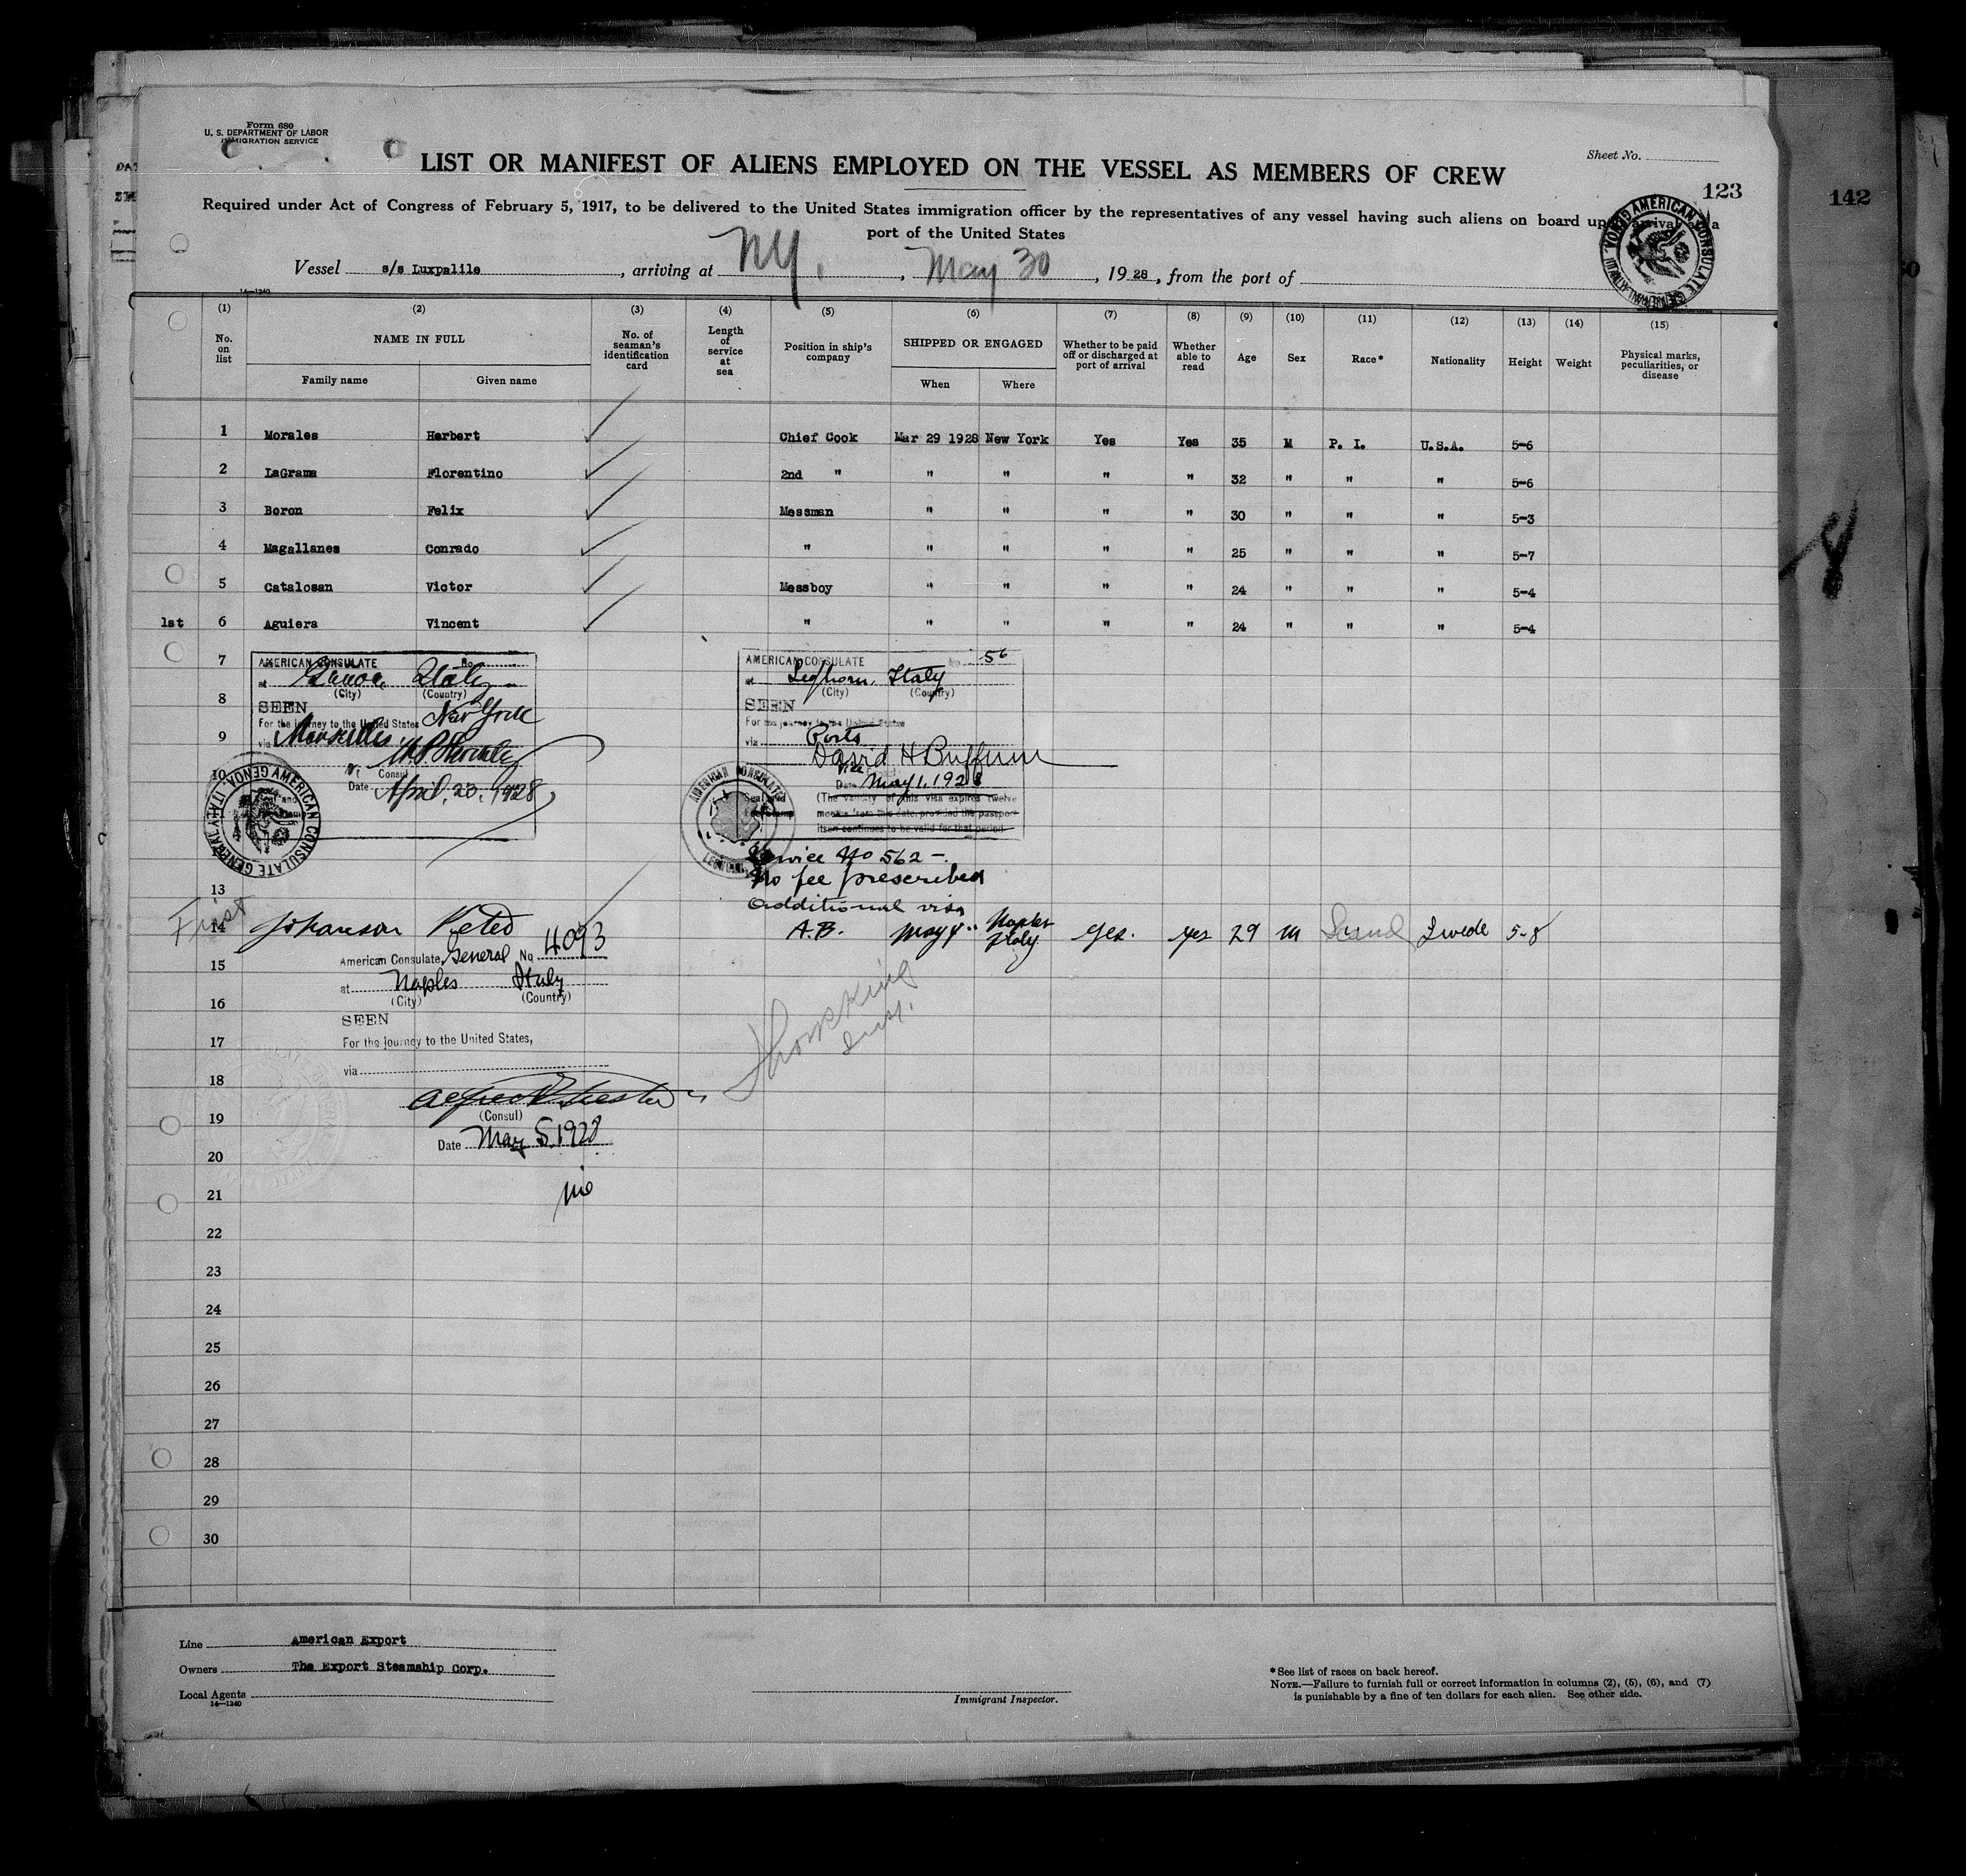 Form 680
U. S. DEPARTMENT OF LABOR
IMMIGRATION SERVICE
LIST OR MANIFEST OF ALIENS EMPLOYED ON THE VESSEL AS MEMBERS OF CREW
Sheet No.
123
142
Required under Act of Congress of February 5, 1917, to be delivered to the United States immigration officer by the representatives of any vessel having such aliens on board upon arrival at a
port of the United States
Vessel s/s Luxpalile, arriving at NY, May 30, 1928, from the port of
14—1240
(1) (2) (3) (4) (5) (6) (7) (8) (9) (10) (11) (12) (13) (14) (15)
No. on list NAME IN FULL Family name Given name No. of seaman's identification card Length of service at sea Position in ship's company SHIPPED OR ENGAGED When Where Whether to be paid off or discharged at port of arrival Whether able to read Age Sex Race* Nationality Height Weight Physical marks, peculiarities, or disease
1 Morales Herbert Chief Cook Mar 29 1928 New York Yes Yes 35 M P. I. U.S.A. 5-6
2 LaGrama Florentino 2nd " " " " " 32 " " " 5-6
3 Boron Felix Messman " " " " 30 " " " 5-3
4 Magallanes Conrado " " " " " 25 " " " 5-7
5 Catalosan Victor Messboy " " " " 24 " " " 5-4
1st 6 Aguiera Vincent " " " " " 24 " " " 5-4
7
8
9
10
13
AMERICAN CONSULATE No.
at Genoa, Italy
(City) (Country)
SEEN
For the journey to the United States New York
via Marseilles
Consul
Date April, 23, 1928
AMERICAN CONSULATE GENERAL GENOA, ITALY
AMERICAN CONSULATE No. 56
at Leghorn, Italy
(City) (Country)
SEEN
For the journey to the United States
via Ports
David H Buffum
Vice
Date May 1, 1928
(The validity of this visa expires twelve
months from this date, provided the passport
itself continues to be valid for that period.
AMERICAN CONSULATE LEGHORN
Service No 562 -.
No fee prescribed
additional visa
First 14 Johanson A.B. May 4 " Naples Italy. Yes. yes 29 m Scand Swede 5-8
15
16
17
18
19
20
21
22
23
24
25
26
27
28
29
30
American Consulate General No 4093
at Naples Italy
(City) (Country)
SEEN
For the journey to the United States,
via
(Consul)
Date May 5. 1928
Insp.
Line American Export
Owners The Export Steamship Corp.
Local Agents
14—1240
Immigrant Inspector.
*See list of races on back hereof.
NOTE.—Failure to furnish full or correct information in columns (2), (5), (6), and (7)
is punishable by a fine of ten dollars for each alien. See other side.